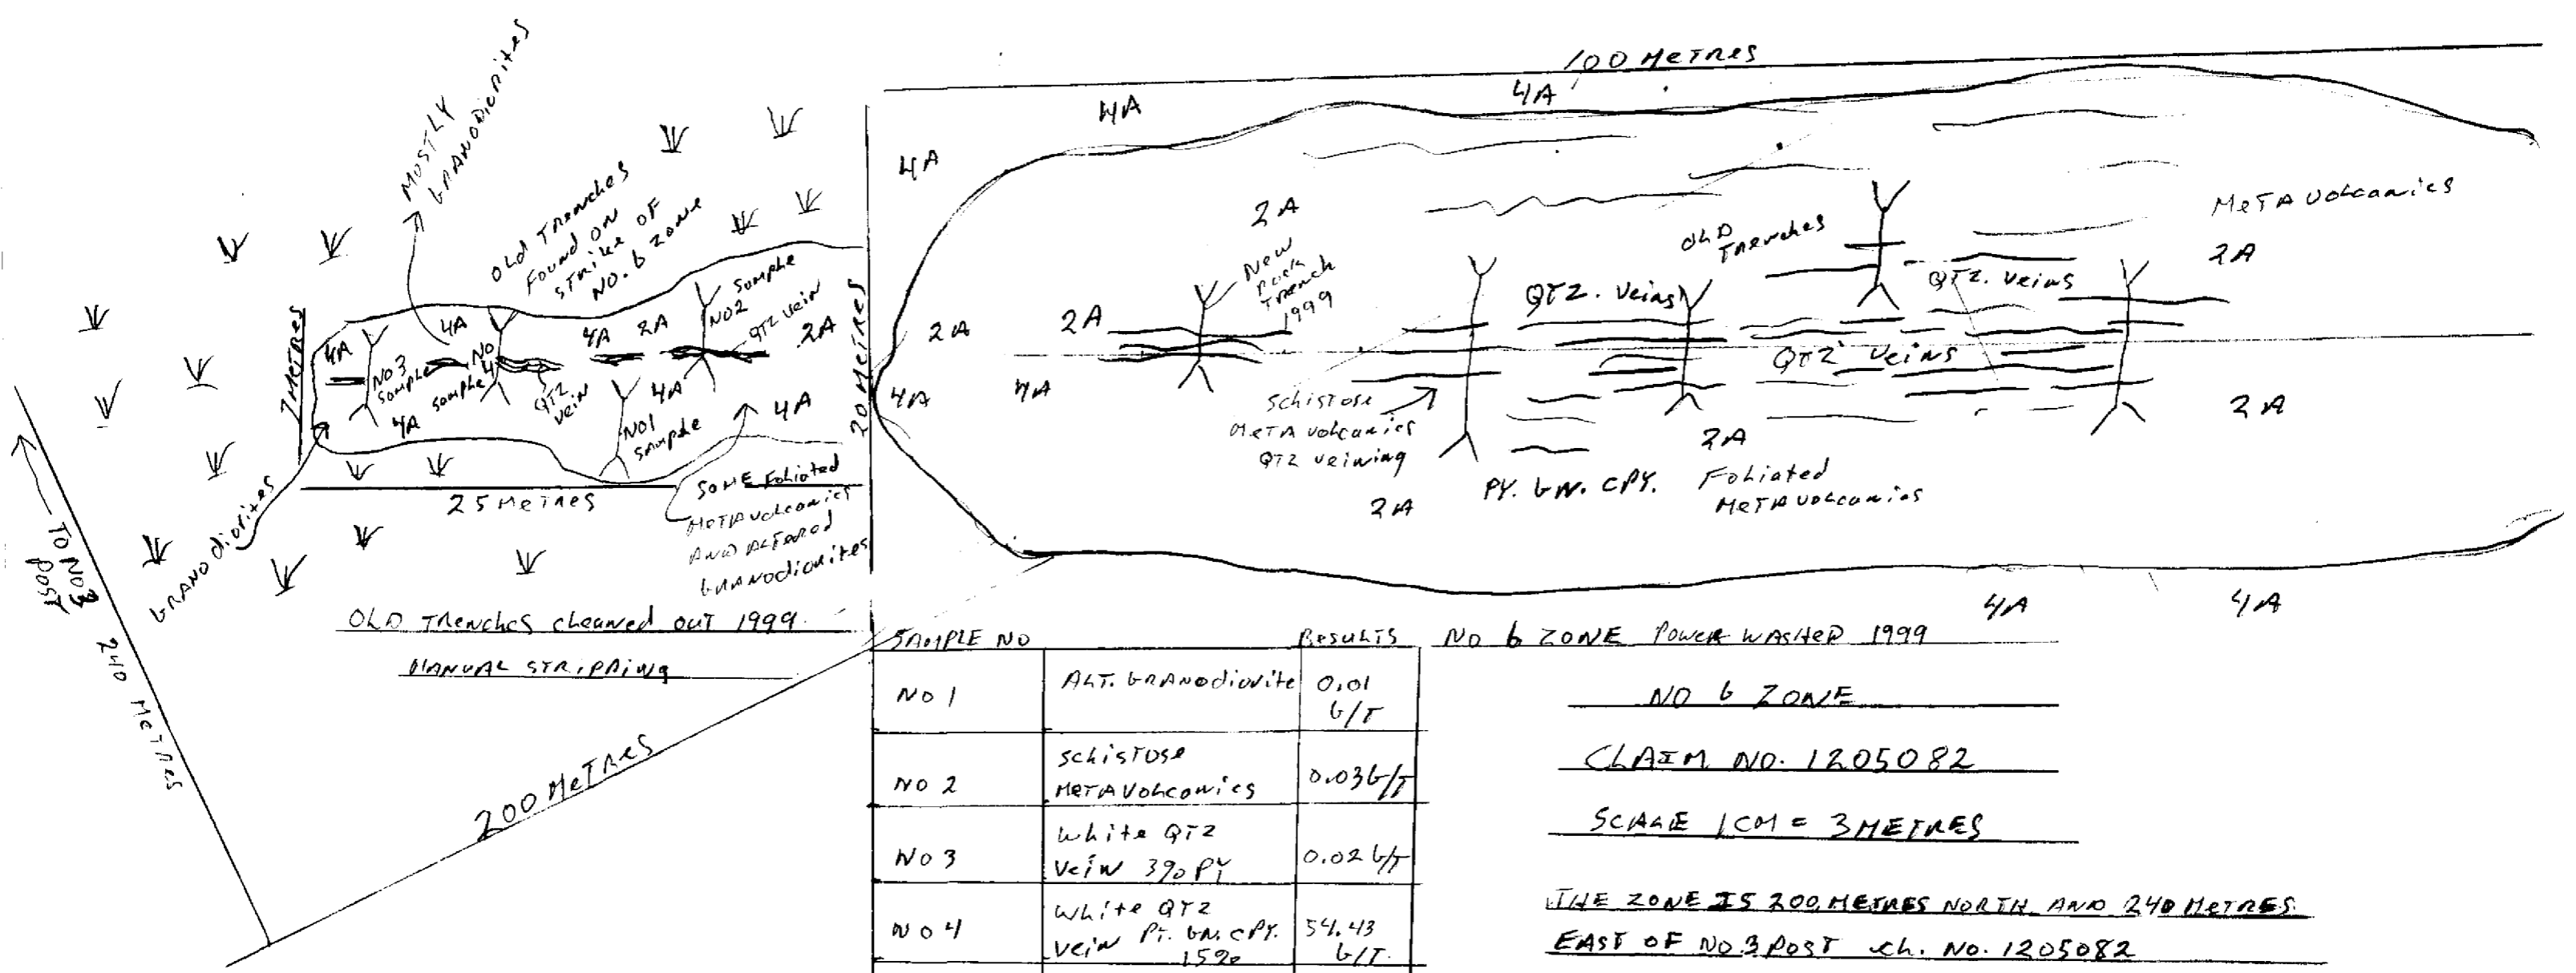 100 METRES
4A
4A
4A
MOSTLY
GRANODIORITES
OLD TRENCHES
FOUND ON
STRIKE OF
NO. 6 ZONE
7 METRES
4A
NO 3
SAMPLE
4A
4A
NO 4
SAMPLE
QTZ
VEIN
4A
2A
NO 2
SAMPLE
QTZ VEIN
2A
4A
NO 1
SAMPLE
4A
20 METRES
25 METRES
GRANODIORITES
SOME FOLIATED
METAVOLCANICS
AND ALTERED
GRANODIORITES
TO NO 3
POST
240 METRES
200 METRES
OLD TRENCHES CLEANED OUT 1999.
MANUAL STRIPPING
2A
NEW
TRENCH
1999
2A
2A
4A
4A
OLD
TRENCHES
METAVOLCANICS
2A
QTZ. VEINS
QTZ. VEINS
QTZ VEINS
SCHISTOSE
METAVOLCANICS
QTZ VEINING
2A
2A
PY. GN. CPY.
FOLIATED
METAVOLCANICS
2A
4A
4A
SAMPLE NO RESULTS
NO 1 ALT. GRANODIORITE 0.01 G/T
NO 2 SCHISTOSE METAVOLCANICS 0.03 G/T
NO 3 WHITE QTZ VEIN 3% PY 0.02 G/T
NO 4 WHITE QTZ VEIN PY. GN. CPY. 15% 54.43 G/T.
NO 6 ZONE POWER WASHED 1999
NO 6 ZONE
CLAIM NO. 1205082
SCALE 1 CM = 3 METRES
THE ZONE IS 200 METRES NORTH AND 240 METRES
EAST OF NO. 3 POST CL. NO. 1205082